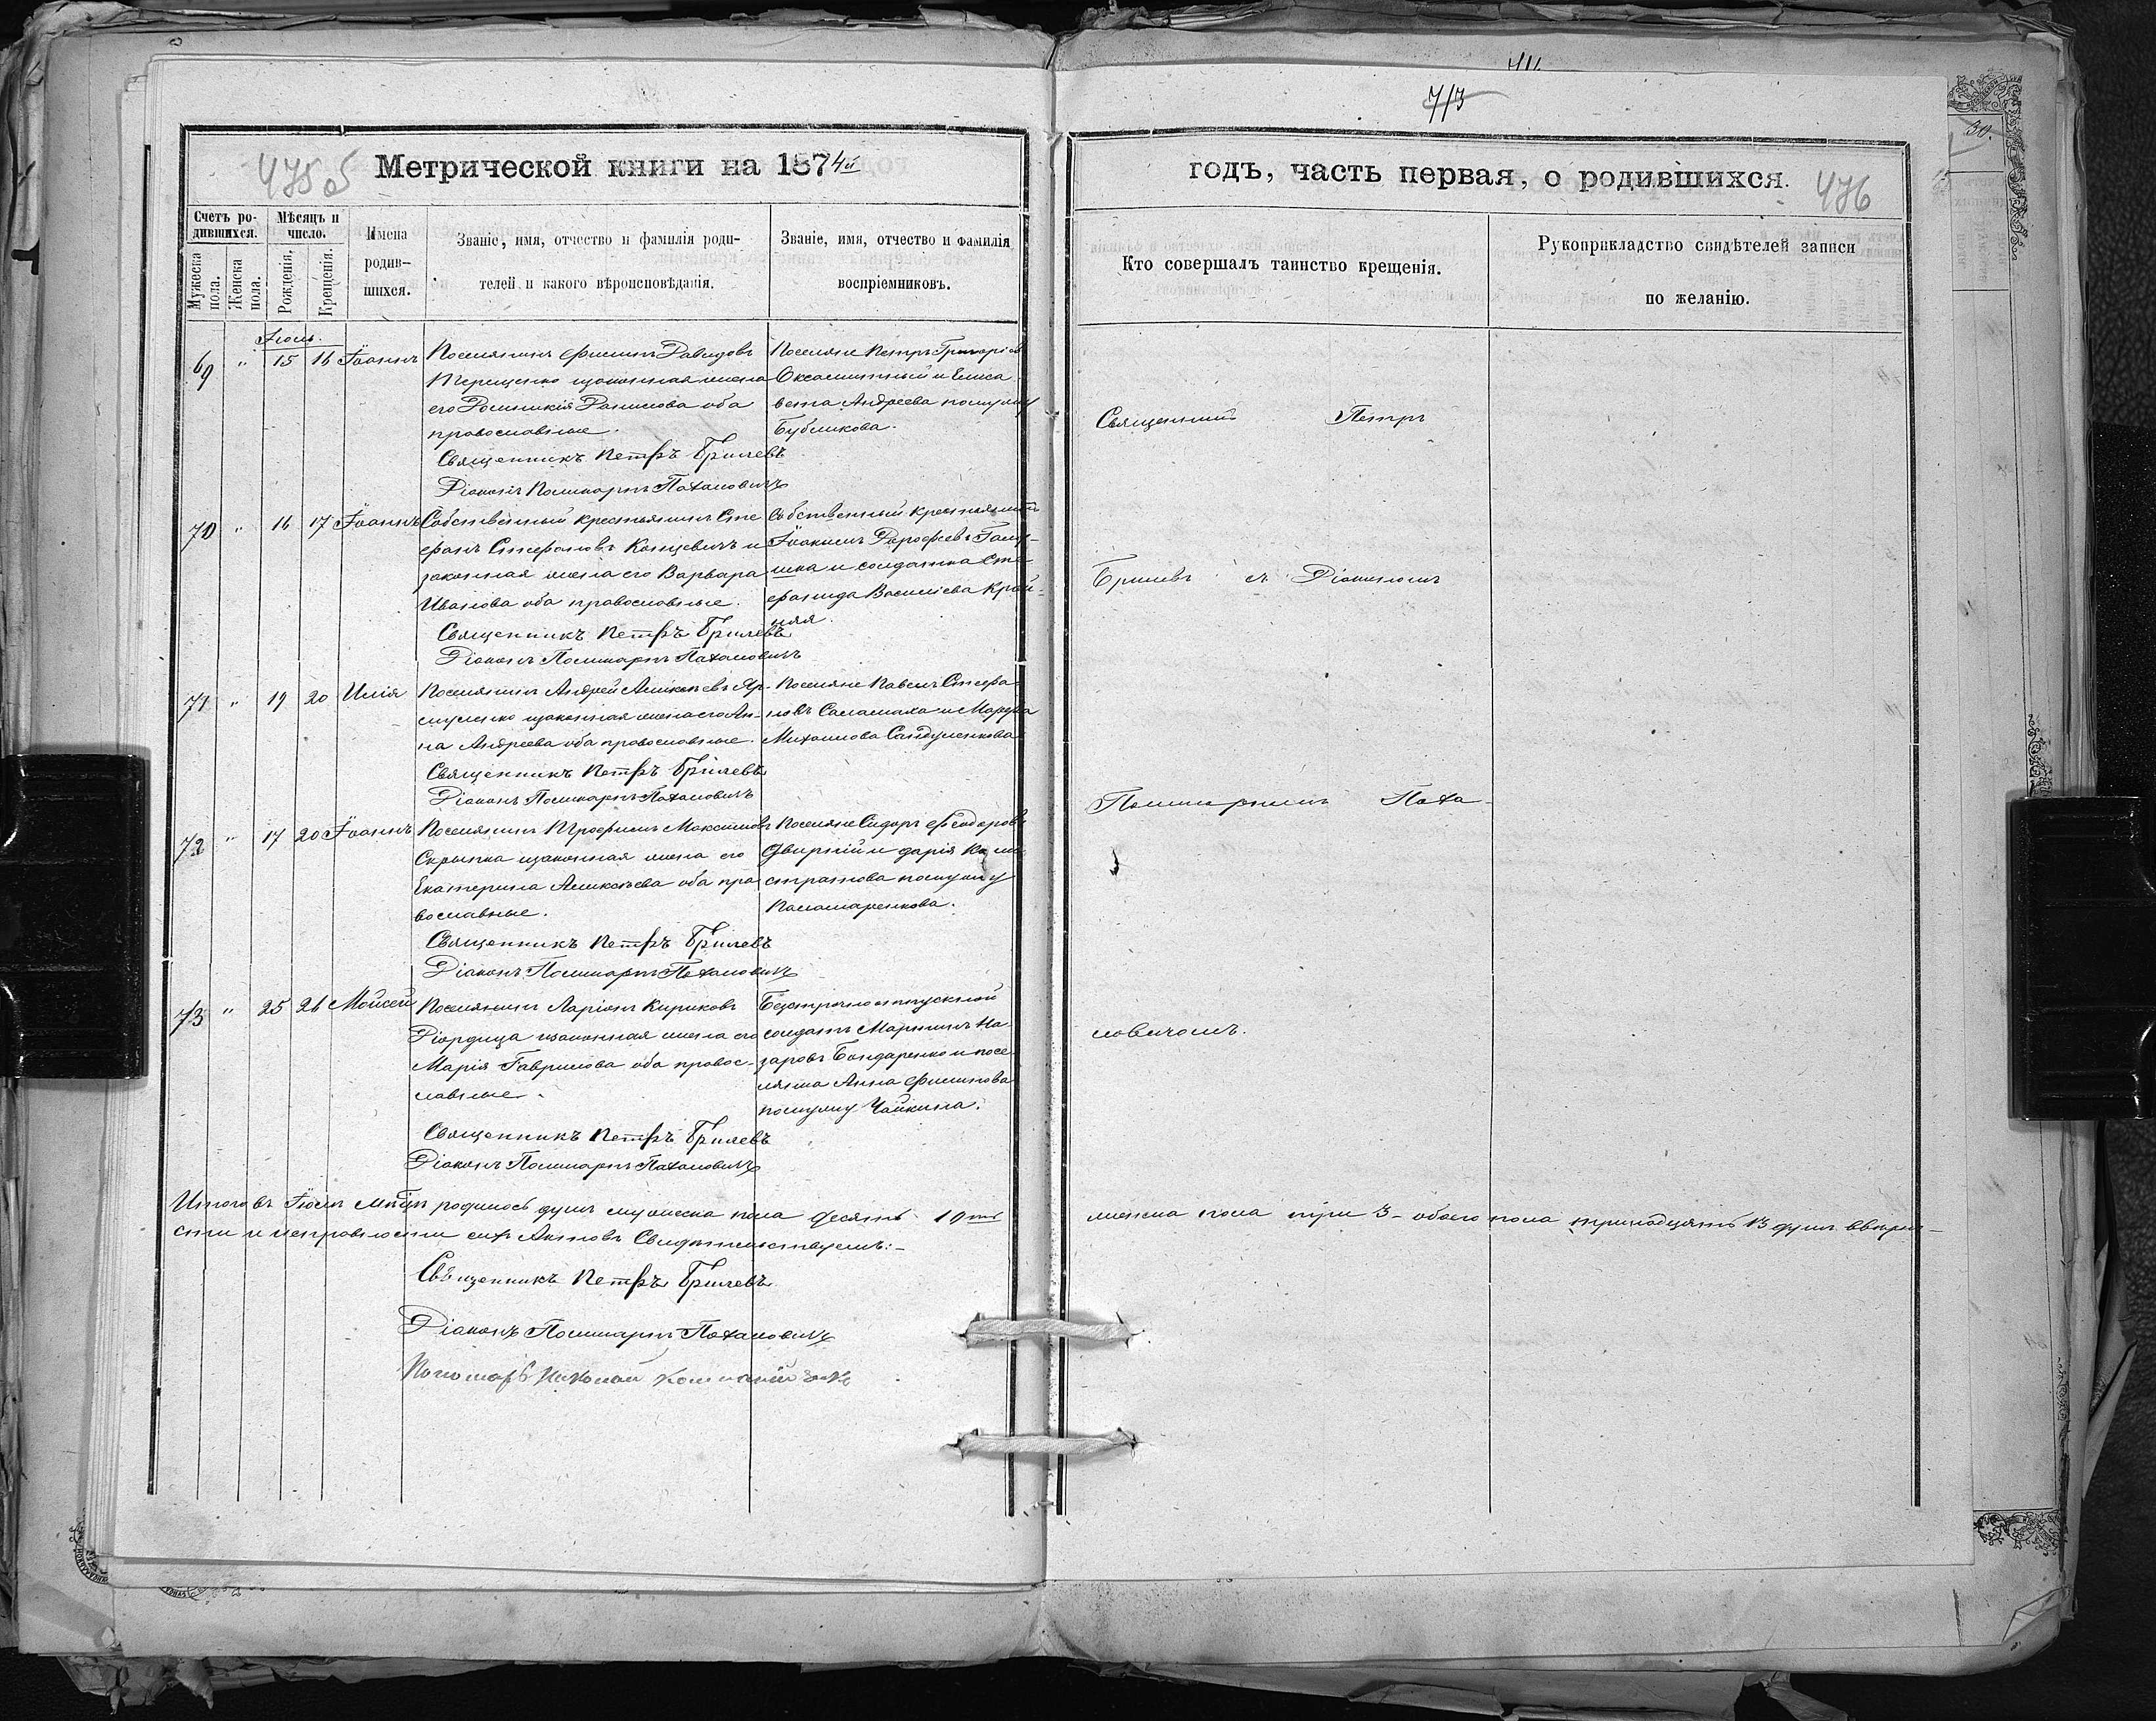 713
Метрической книги на 1874й
годъ, часть первая, о родившихся.
475 об
476
Счетъ ро-
дившихся.
Мужеска пола.
Женска пола.
Мѣсяцъ и
число.
Рожденія.
Крещенія.
Имена
родив-
шихся.
Званіе, имя, отчество и фамилія роди-
телей и какого вѣроисповѣданія.
Званіе, имя, отчество и фамилія
воспріемниковъ.
Кто совершалъ таинство крещенія.
Рукоприкладство свидѣтелей записи
по желанію.
Іюль.
69 " 15 16 Іоаннъ
Поселянинъ Филипъ Давидовъ
Терещенко изаконная жена
его Домникія Данилова оба
православные.
Священникъ Петръ Брилевъ
Діаконъ Поликарпъ Пахаловичъ
Поселяне Петръ Григоріевъ
Оксамитный и Елиса
вета Андреева помужу
Бубликова.
70 " 16 17 Іоаннъ
Собственный крестьянинъ Сте
фанъ Стефановъ Концевичъ и
законная жена его Варвара
Иванова оба православные.
Священникъ Петръ Брилевъ
Діаконъ Поликарпъ Пахаловичъ
Собственный крестьянинъ
Іоакимъ Дорофеевъ
и солдатка Сте
фанида Василіева Край-
няя.
71 " 19 20 Илія
Поселянинъ Андрей Аликсѣевъ Яр-
муленко изаконная жена его Ан-
на Андреева оба православные.
Священникъ Петръ Брилевъ
Діаконъ Поликарпъ Пахаловичъ
Поселяне Павелъ Стефа
новъ Саламаха и Марфа
Михаилова Сандуленкова
72 " 17 20 Іоаннъ
Поселянинъ Трофимъ Максимовъ
Скрыпка изаконная жена его
Екатерина Аликсѣева оба пра
вославные.
Священникъ Петръ Брилевъ
Діаконъ Поликарпъ Пахаловичъ
Поселяне Сидоръ Феодоровъ
Дворній и дарія Кали
стратова помужу
Паламаренкова.
73 " 25 26 Мойсей
Поселянинъ Ларіонъ Кириковъ
Діордица изаконная жена его
Марія Гаврилова оба правос-
лавные.
Священникъ Петръ Брилевъ
Діаконъ Поликарпъ Пахаловичъ
Безсрочноотпускной
солдатъ Мартинъ На-
заровъ Бондаренко и посе
лянка Анна Филипова
помужу Чайкина.
Священникъ Петръ
Брилевъ съ Діакономъ
Поликарпомъ Паха-
ловичомъ.
Итого въ Іюлѣ Мѣсяцѣ родилось душъ мужеска пола десять 10ть
женска пола три 3 - обоего пола тринадцять 13 душъ ввѣрно-
сти и исправности сихъ Актовъ Свидѣтельствуемъ:-
Священникъ Петръ Брилевъ
Діаконъ Поликарпъ Пахаловичъ
Пономарь Николай